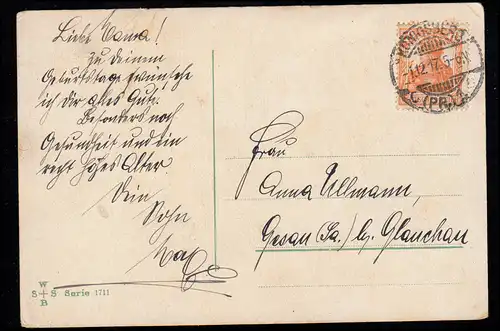 Liebe Mama!
Zu Deinem
Geburtstage wünsche
ich Dir alles Gute.
Besonders noch
Gesundheit und ein
recht hohes Alter.
Dein
Sohn
Frau
Anna Ullmann,
Gesau (Sa.) b. Glauchau
KÖNIGSBERG
12.17.
C (PR.)
W
S + S Serie 1711
B